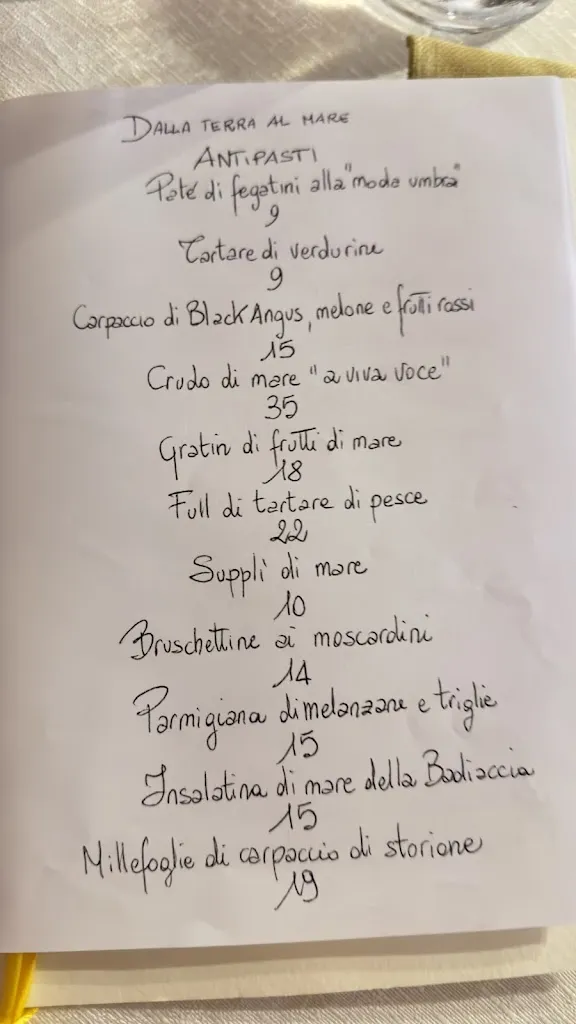 DALLA TERRA AL MARE
ANTIPASTI
Paté di fegatini alla "moda umbra"
9
Tartare di verdurine
9
Carpaccio di Black Angus, melone e frutti rossi
15
Crudo di mare "a viva voce"
35
Gratin di frutti di mare
18
Full di tartare di pesce
22
Supplì di mare
10
Bruschettine ai moscardini
14
Parmigiana di melanzane e triglie
15
Insalatina di mare della Badiaccia
15
Millefoglie di carpaccio di storione
19